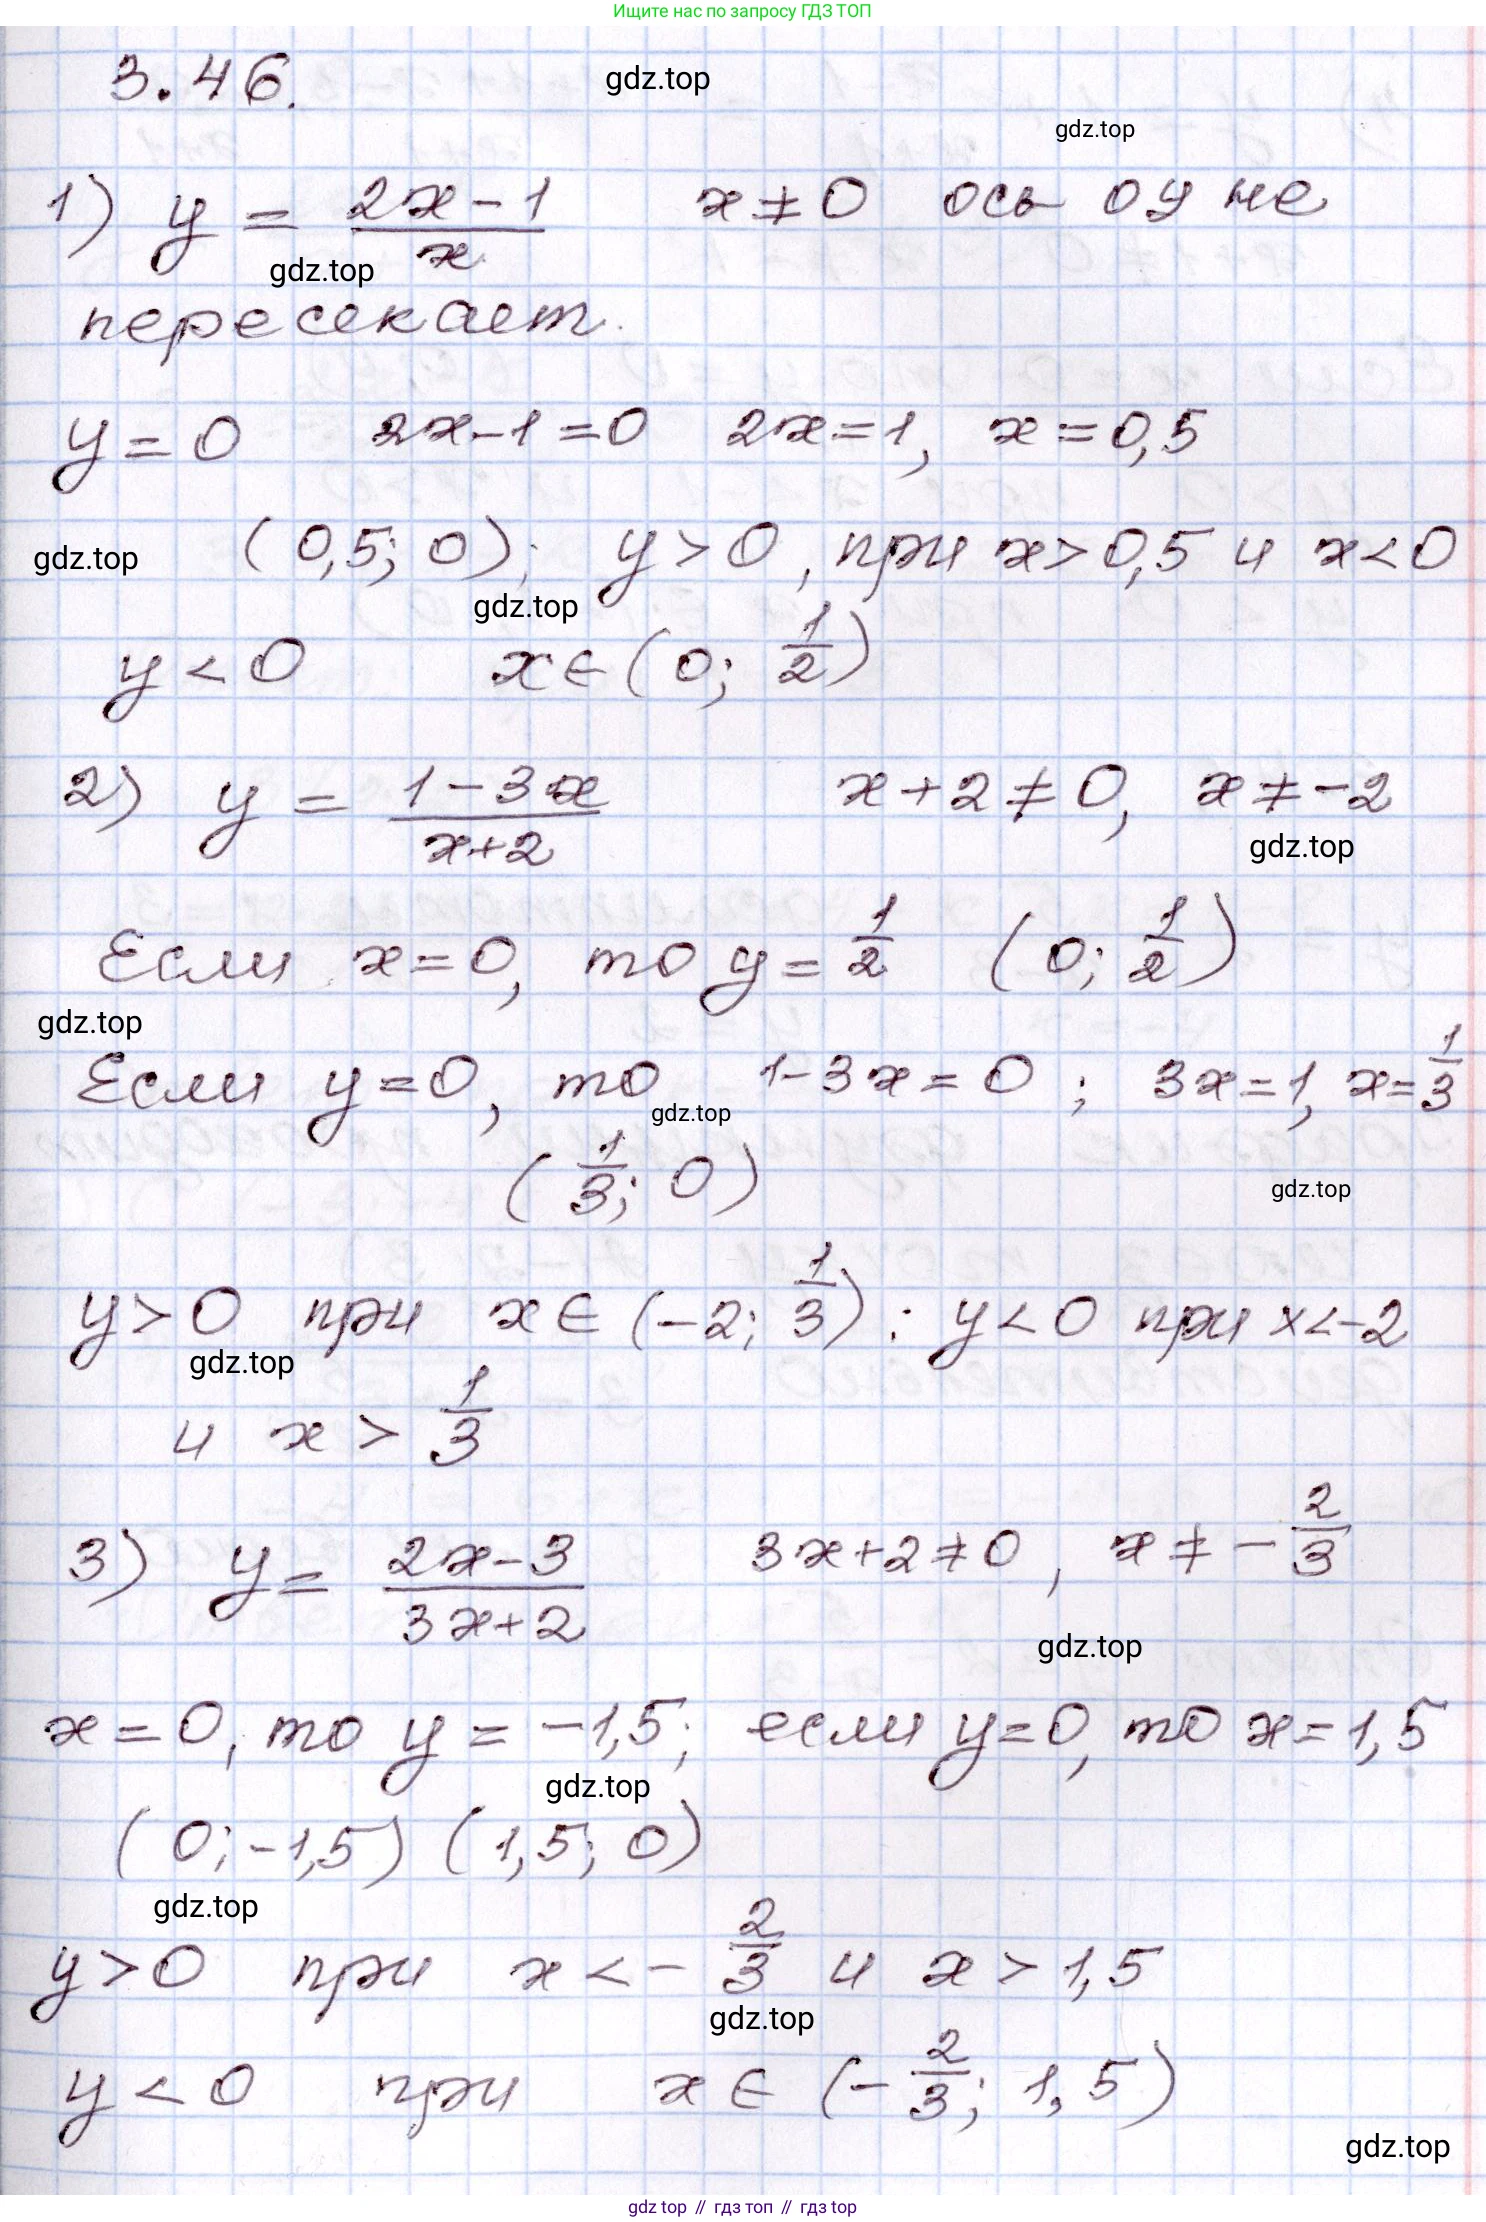 Ищите нас по запросу ГДЗ ТОП
3.46.
gdz.top
gdz.top
1) y = (2x-1)/x   x≠0 ось oy не
gdz.top
пересекает.
y=0   2x-1=0   2x=1, x=0,5
gdz.top (0,5; 0); y>0, при x>0,5 и x<0
gdz.top
y<0   x∈(0; 1/2)
2) y = (1-3x)/(x+2)   x+2≠0, x≠-2
gdz.top
Если x=0, то y=1/2 (0; 1/2)
gdz.top
Если y=0, то 1-3x=0; 3x=1, x=1/3
gdz.top
(1/3; 0)
gdz.top
y>0 при x∈(-2; 1/3); y<0 при x<-2
gdz.top
и x>1/3
3) y = (2x-3)/(3x+2)   3x+2≠0, x≠-2/3
gdz.top
x=0, то y=-1,5; если y=0, то x=1,5
gdz.top
(0;-1,5) (1,5; 0)
gdz.top
y>0 при x<-2/3 и x>1,5
gdz.top
y<0 при x∈(-2/3; 1,5)
gdz.top
gdz top // гдз топ // gdz top